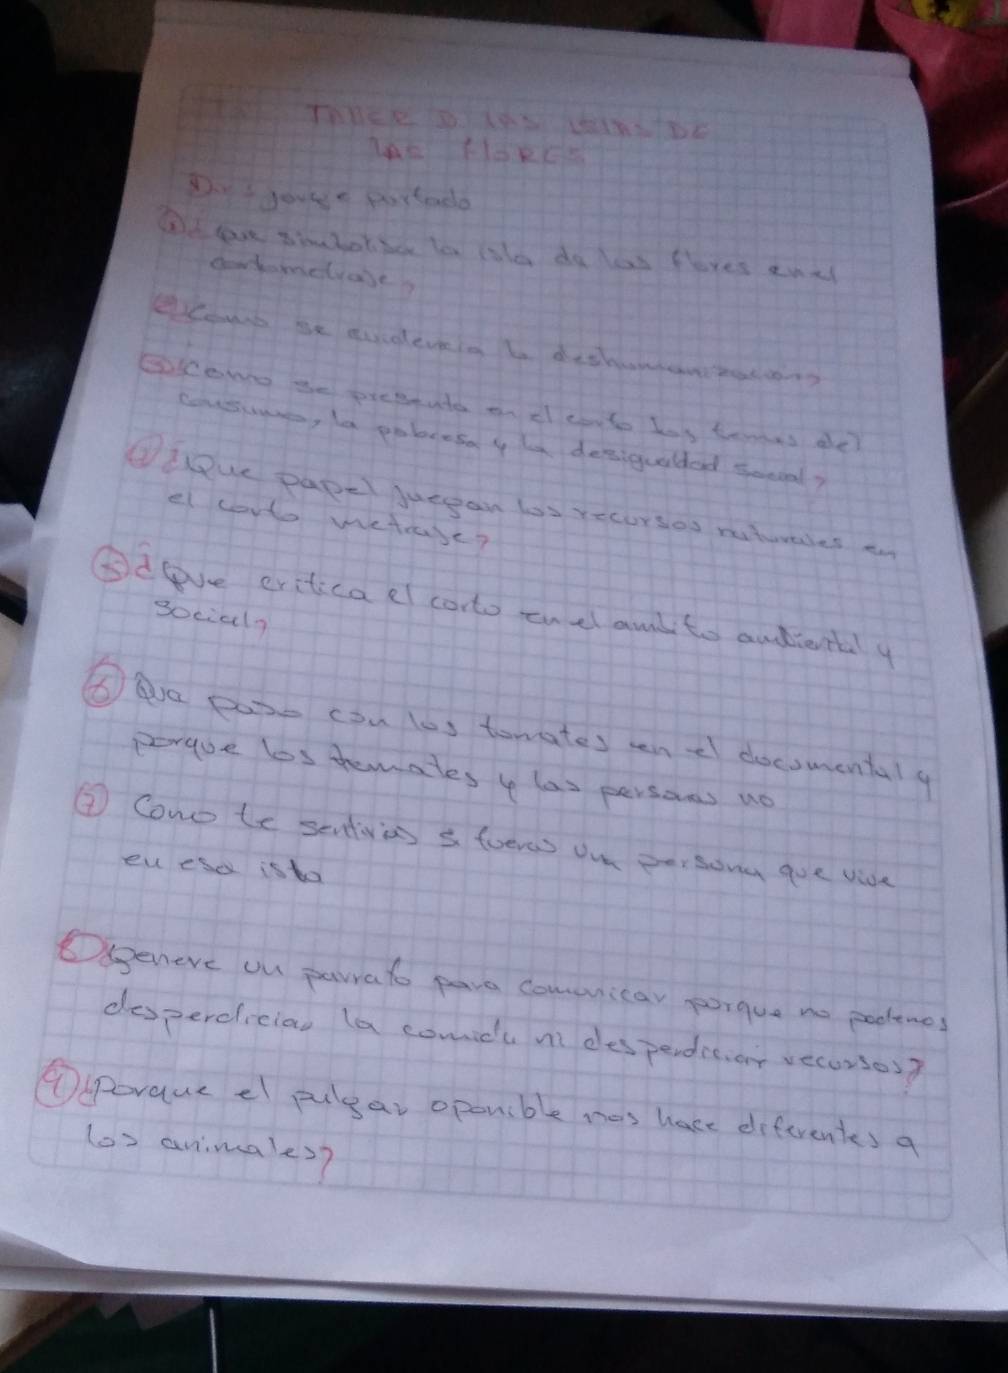 TALLER D LAS ISLAS DE
LAS FLORES
Dir: jorge portado
① ¿que simbolisa la isla de las flores en el
cortometraje?
② ¿como se evidencia la deshumanizacion?
③ ¿como se presenta en el corto los temas del
consumo, la pobresa y la desigualdad social?
④ ¿Que papel juegan los recursos naturales en
el corto metraje?
⑤ ¿Que critica el corto en el ambito ambiental y
social?
⑥ Que paso con los tomates en el documental y
porque los tomates y las personas no
⑦ Como te sentirias si fueras una persona que vive
en esa isla
⑧ Genere un parrafo para comunicar porque no podemos
desperdiciar la comida ni desperdiciar recursos?
⑨ ¿Porque el pulgar oponible nos hace diferentes a
los animales?